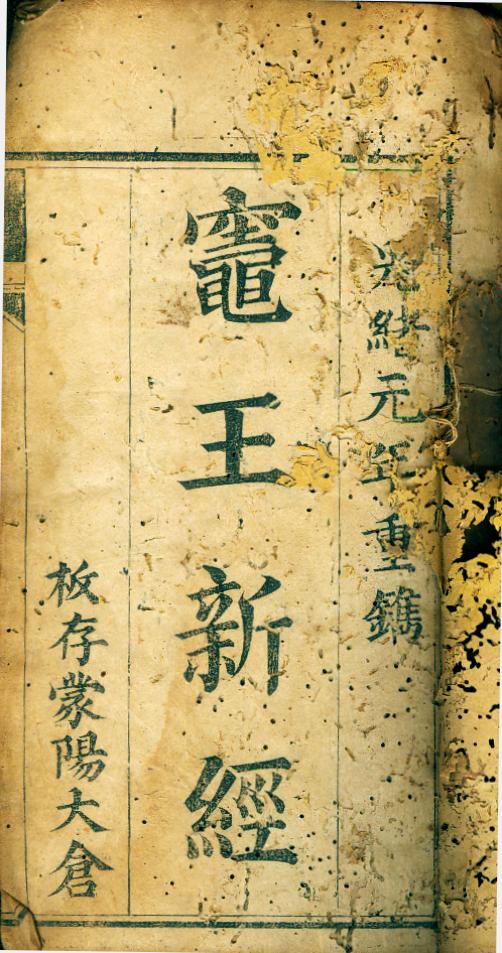 光緒元年重鐫
竈王新經
板存蒙陽大倉